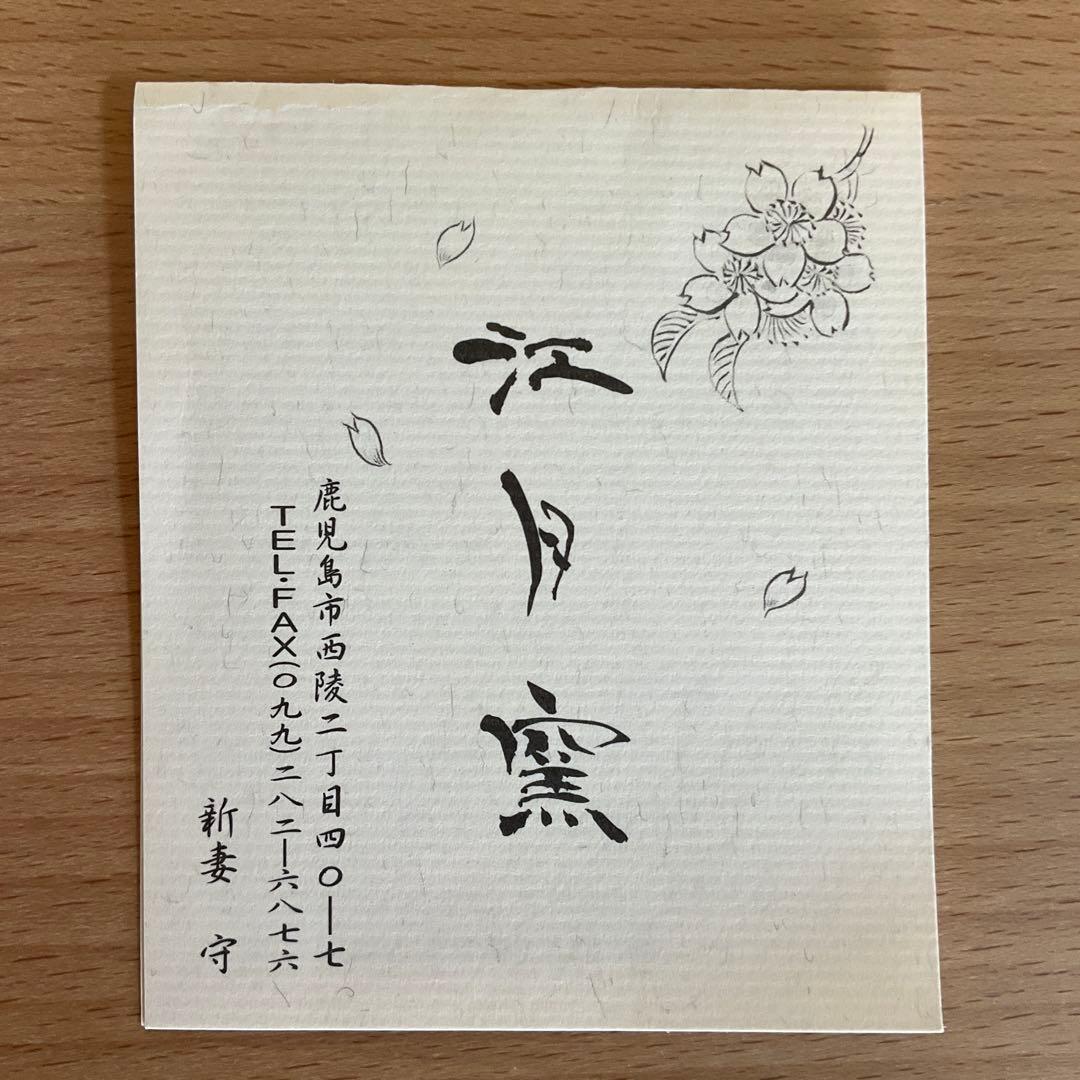 江月窯
鹿児島市西陵二丁目四〇―七
TEL・FAX(〇九九)二八二―六八七六
新妻 守